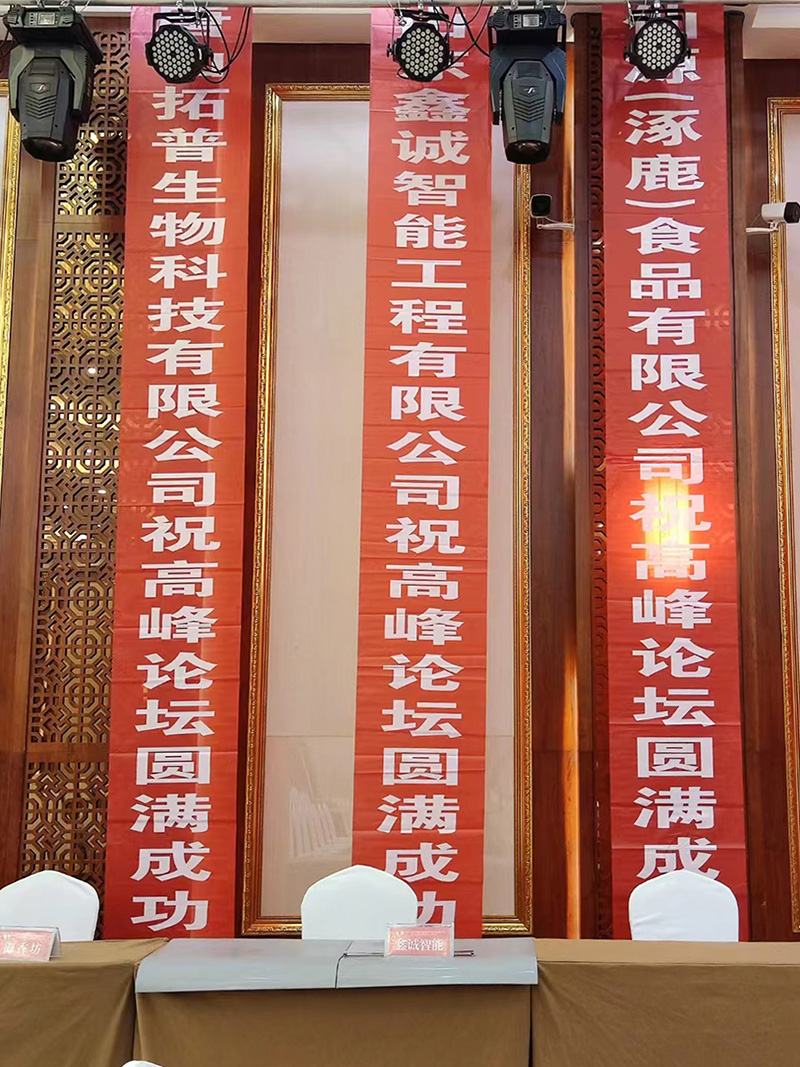 拓普生物科技有限公司祝高峰论坛圆满成功
鑫诚智能工程有限公司祝高峰论坛圆满成功
(涿鹿)食品有限公司祝高峰论坛圆满成
香坊
鑫诚智能